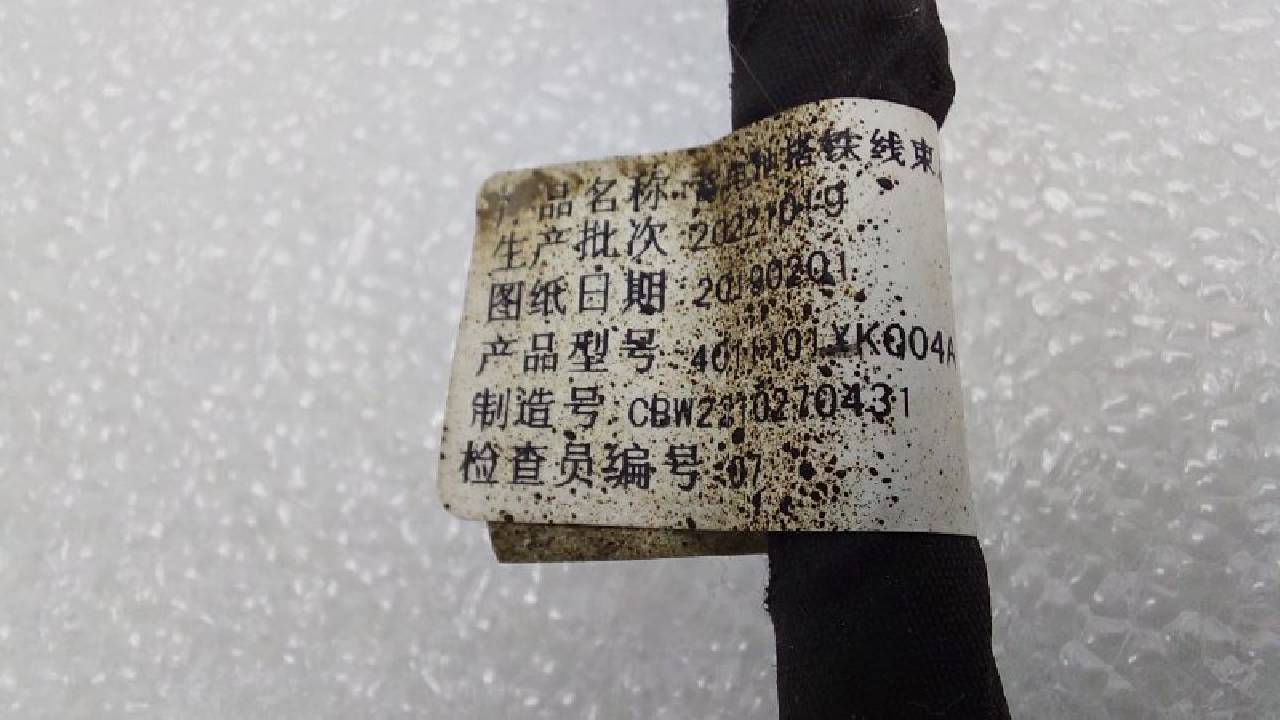 产品名称 蓄电池搭铁线束
生产批次 20221019
图纸日期 20190201
产品型号 401H01XKQ04A
制造号 CBW2210270431
检查员编号 07